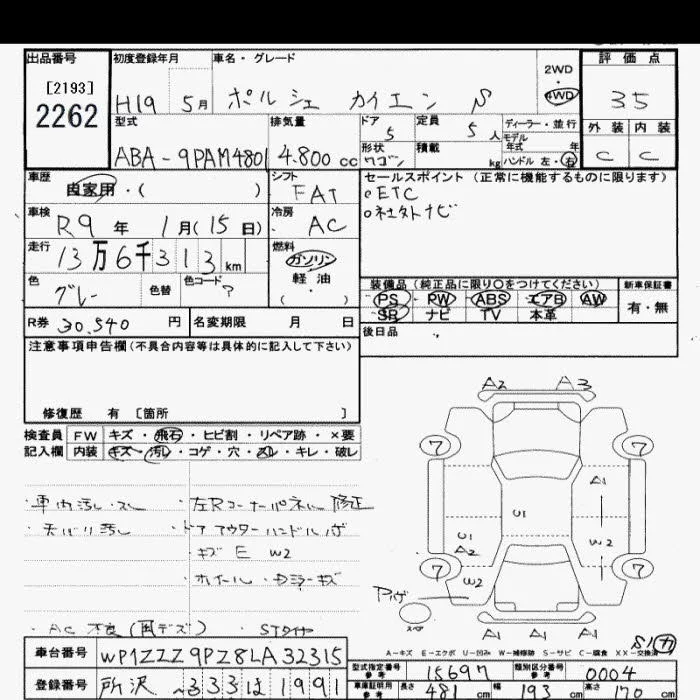 出品番号 初度登録年月 車名・グレード 2WD 評価点
[2193]
2262
H19 5月 ポルシェ カイエン S 4WD 35
型式 排気量 ドア 定員 ディーラー・並行 外装 内装
ABA-9PAM4801 4.800 cc 5 5人 モデル年式 年 C C
形状 ワゴン 積載 kg ハンドル 左・右
車歴 自家用・( ) シフト FAT セールスポイント (正常に機能するものに限ります)
○ETC
車検 R9年 1月(15日) 冷房 AC ○社外ナビ
走行 13万6千313km 燃料 ガソリン
軽油
( ・ )
色 グレー 色替 色コード ? 装備品(純正品に限り○をつけてください) 新車保証書
PS PW ABS エアB AW 有・無
SR ナビ TV 本革
R券 30,540 円 名変期限 月 日 後日品
注意事項申告欄(不具合内容等は具体的に記入して下さい)
修復歴 有 [箇所 ]
検査員 FW キズ・飛石・ヒビ割・リペア跡・×要
記入欄 内装 キズ・汚レ・コゲ・穴・スレ・キレ・破レ
・車内汚レ・スレ ・左Rコーナーパネル修正
・天バリ汚レ ・ドアアウターハンドルハゲ
・キズ E W2
・ホイール・Dミラーキズ
・AC不良(雨デズ) ・STタイヤ
A2 A3
7 7
A1
U1
U1 A2 W2
7 7
W2
Pハゲ
スペア
A1 A1 A1
A-キズ E-エクボ U-凹み W-補修跡 S-サビ C-腐食 XX-交換済
車台番号 WP1ZZZ9PZ8LA32315 型式指定番号 参考 15697 類別区分番号 参考 0004
登録番号 所沢 333 ほ 1991 車庫証明用 参考 長さ 481cm 幅 193cm 高さ 170cm